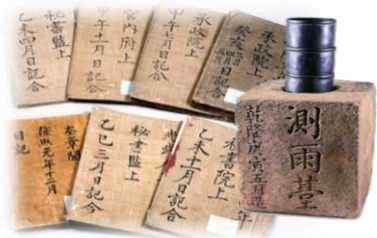 秘書監上
乙未四月日記合
宮內府上
甲午十一月日記合
承政院上
甲午七月日記合
承政院上
奎章閣
隆熙元年十二月
日記
秘書監上
乙巳三月日記合
秘書院上
乙未十一月日記合
測雨臺
乾隆庚寅五月造